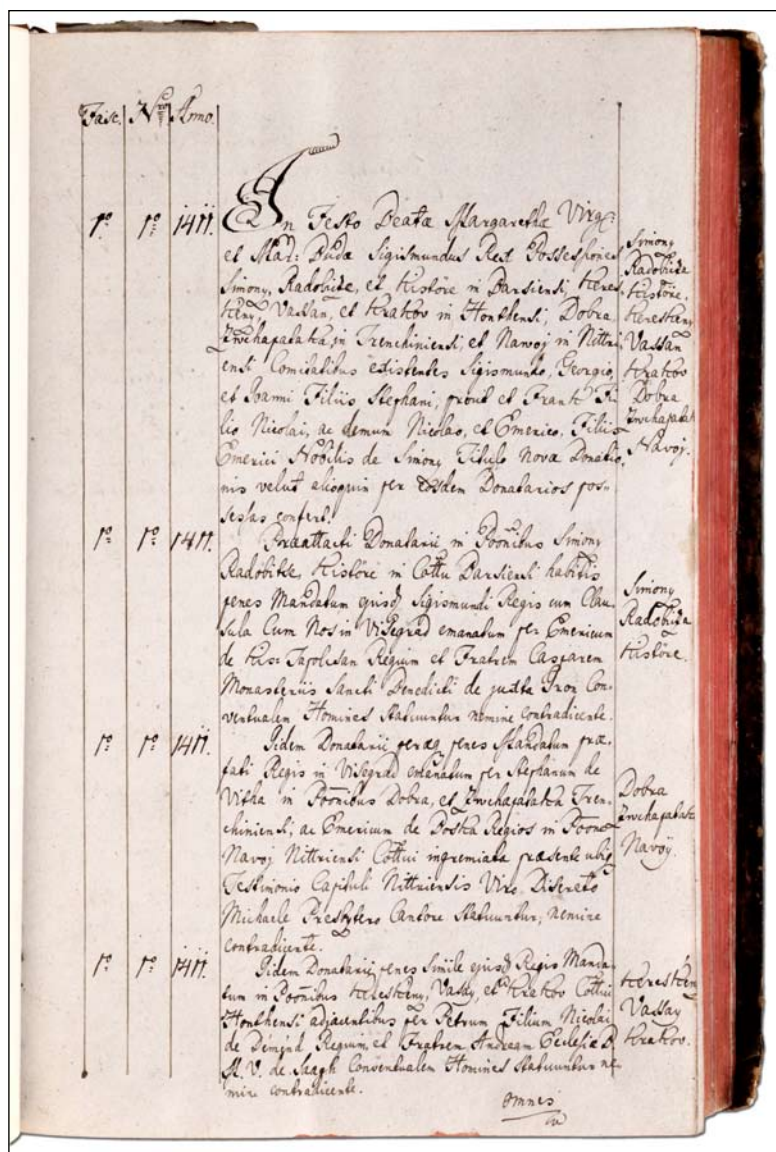 Fasc. Nro Anno.
1o 1o 1411. In Festo Beatæ Margarethæ Virg:
et Mar: Budæ Sigismundus Rex Possessiones
Simony, Radobicza, et Kistöre in Barsiensi, Keres-
keny, Vassan, et Krakov in Honthensi, Dobra
in Trenchiniensi, et Navoj in Nittri-
ensi Comitatibus existentes Sigismundo, Georgio,
et Joanni Filiis Stephani, prout et Frank Fi-
lio Nicolai, ac demum Nicolao, et Emerico, Filiis
Emerici Nobilis de Simony Titulo Novæ Donatio-
nis velut alioquin per Eosdem Donatarios pos-
sessas confert.
Simony
Radobicza
Kistöre.
Kereskeny
Vassan
Krakov
Dobra
Navoj.
1o 1o 1411. Præattacti Donatarii in Poonibus Simony
Radobicza, Kistöre in Cottu Barsiensi habitis
penes Mandatum ejusd Sigismundi Regis cum Clau-
sula Cum Nos in Visegrad emanatum per Emericum
de Kis Tapolcsan Regium et Fratrem Casparem
Monasterii Sancti Benedicti de juxta Gron Con-
ventualem Homines Statuuntur nemine contradicente.
Simony
Radobicza
Kistöre.
1o 1o 1411. Iidem Donatarii peræq penes Mandatum præ-
fati Regis in Visegrad emanatum per Stephanum de
in Poonibus Dobra, et Tren-
chiniensi, ac Emericum de Regios in Poone
Navoj Nittriensi Cottui ingremiata præsente ubiq
Testimonio Capituli Nittriensis Viro Discreto
Michaele Presbytero Cantore Statuuntur, nemine
contradicente.
Dobra
Navoÿ.
1o 1o 1411. Iidem Donatarii penes Simile ejusd Regis Manda-
tum in Poonibus Kereskeny, Vasay, et Krakov Cottui
Honthensi adjacentibus per Petrum Filium Nicolai
de Regium, et Fratrem Andream Ecclesiæ B.
M. V. de Saagh Conventualem Homines Statuuntur ne-
mine contradicente.
Kereskeny
Vassay
Krakov.
omnes